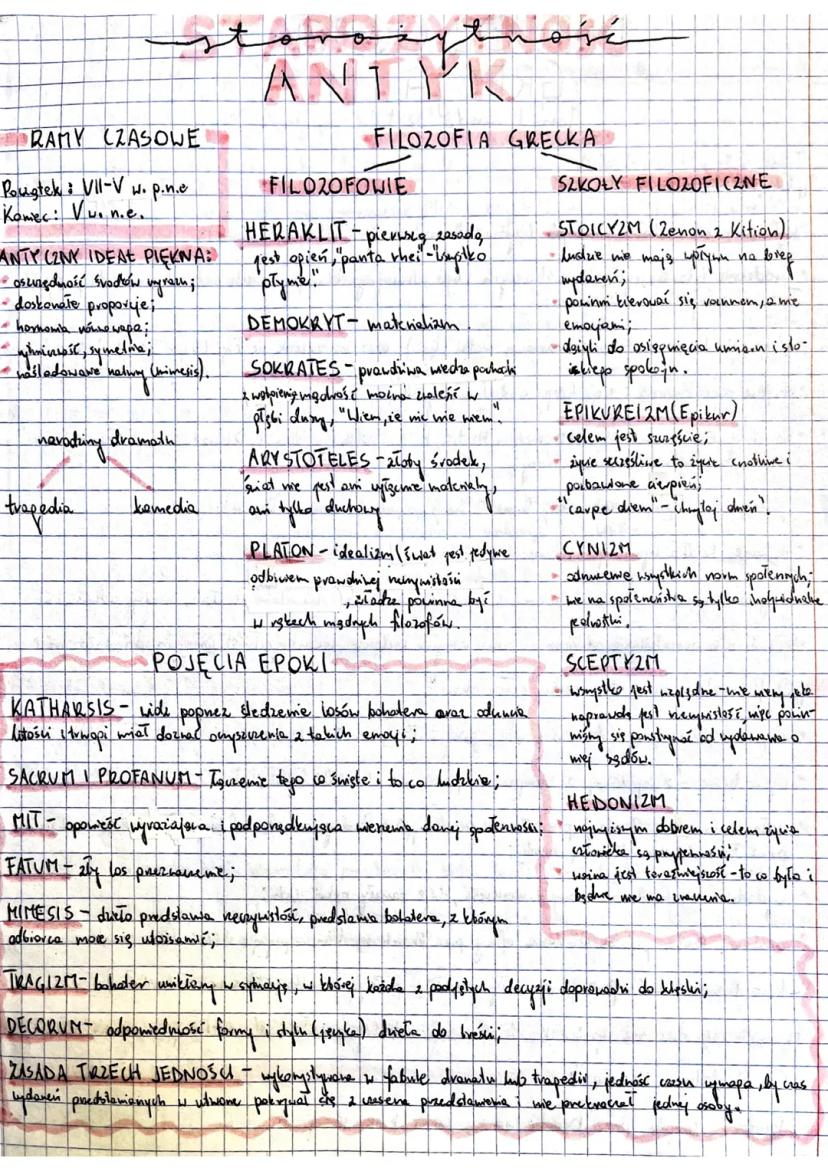 starożytność
ANTYK
RAMY CZASOWE
Początek: VII-V w. p.n.e
Koniec: V w. n.e.
ANTYCZNY IDEAŁ PIĘKNA:
oszczędność środków wyrazu;
doskonałe proporcje;
harmonia równowaga;
witalność, symetria;
naśladowanie natury (mimesis).
narodziny dramatu
tragedia komedia
FILOZOFIA GRECKA
FILOZOFOWIE
HERAKLIT - pierwszą zasadą
jest ogień, "panta rhei" - "wszystko
płynie."
DEMOKRYT - materializm.
SOKRATES - prawdziwa wiedza pochodzi
z wątpienia, mądrość można znaleźć w
głębi duszy, "Wiem, że nic nie wiem".
ARYSTOTELES - złoty środek,
świat nie jest ani wyłącznie materialny,
ani tylko duchowy
PLATON - idealizm (świat jest jedynie
odbiciem prawdziwej rzeczywistości
, władza powinna być
w rękach mądrych filozofów.
SZKOŁY FILOZOFICZNE
STOICYZM (Zenon z Kition)
ludzie nie mają wpływu na bieg
wydarzeń;
powinni kierować się rozumem, a nie
emocjami;
dążyli do osiągnięcia umiaru i sto-
ickiego spokoju.
EPIKUREIZM (Epikur)
celem jest szczęście;
życie szczęśliwe to życie cnotliwe i
pozbawione cierpień;
"carpe diem" - chwytaj dzień".
CYNIZM
odrzucenie wszystkich norm społecznych;
nie ma społeczeństwa są tylko indywidualne
jednostki.
SCEPTYZM
wszystko jest względne - nie wiemy jaka
naprawdę jest rzeczywistość, więc powin-
niśmy się powstrzymać od wydawania o
niej sądów.
HEDONIZM
najwyższym dobrem i celem życia
człowieka są przyjemności;
ważna jest teraźniejszość - to co było i
będzie nie ma znaczenia.
POJĘCIA EPOKI
KATHARSIS - widz poprzez śledzenie losów bohatera oraz odczucia
litości i trwogi miał doznać oczyszczenia z takich emocji;
SACRUM I PROFANUM - Łączenie tego co święte i to co ludzkie;
MIT - opowieść wyrażająca i podporządkująca wierzenia danej społeczności;
FATUM - zły los przeznaczenie;
MIMESIS - dzieło przedstawia rzeczywistość, przedstawia bohatera, z którym
odbiorca może się utożsamić;
TRAGIZM - bohater uwikłany w sytuację, w której każda z podjętych decyzji doprowadzi do klęski;
DECORUM - odpowiedniość formy i stylu (języka) dzieła do treści;
ZASADA TRZECH JEDNOŚCI - wykorzystywana w fabule dramatu lub tragedii, jedność czasu wymaga, by czas
wydarzeń przedstawianych w utworze pokrywał się z czasem przedstawienia i nie przekraczał jednej osoby.